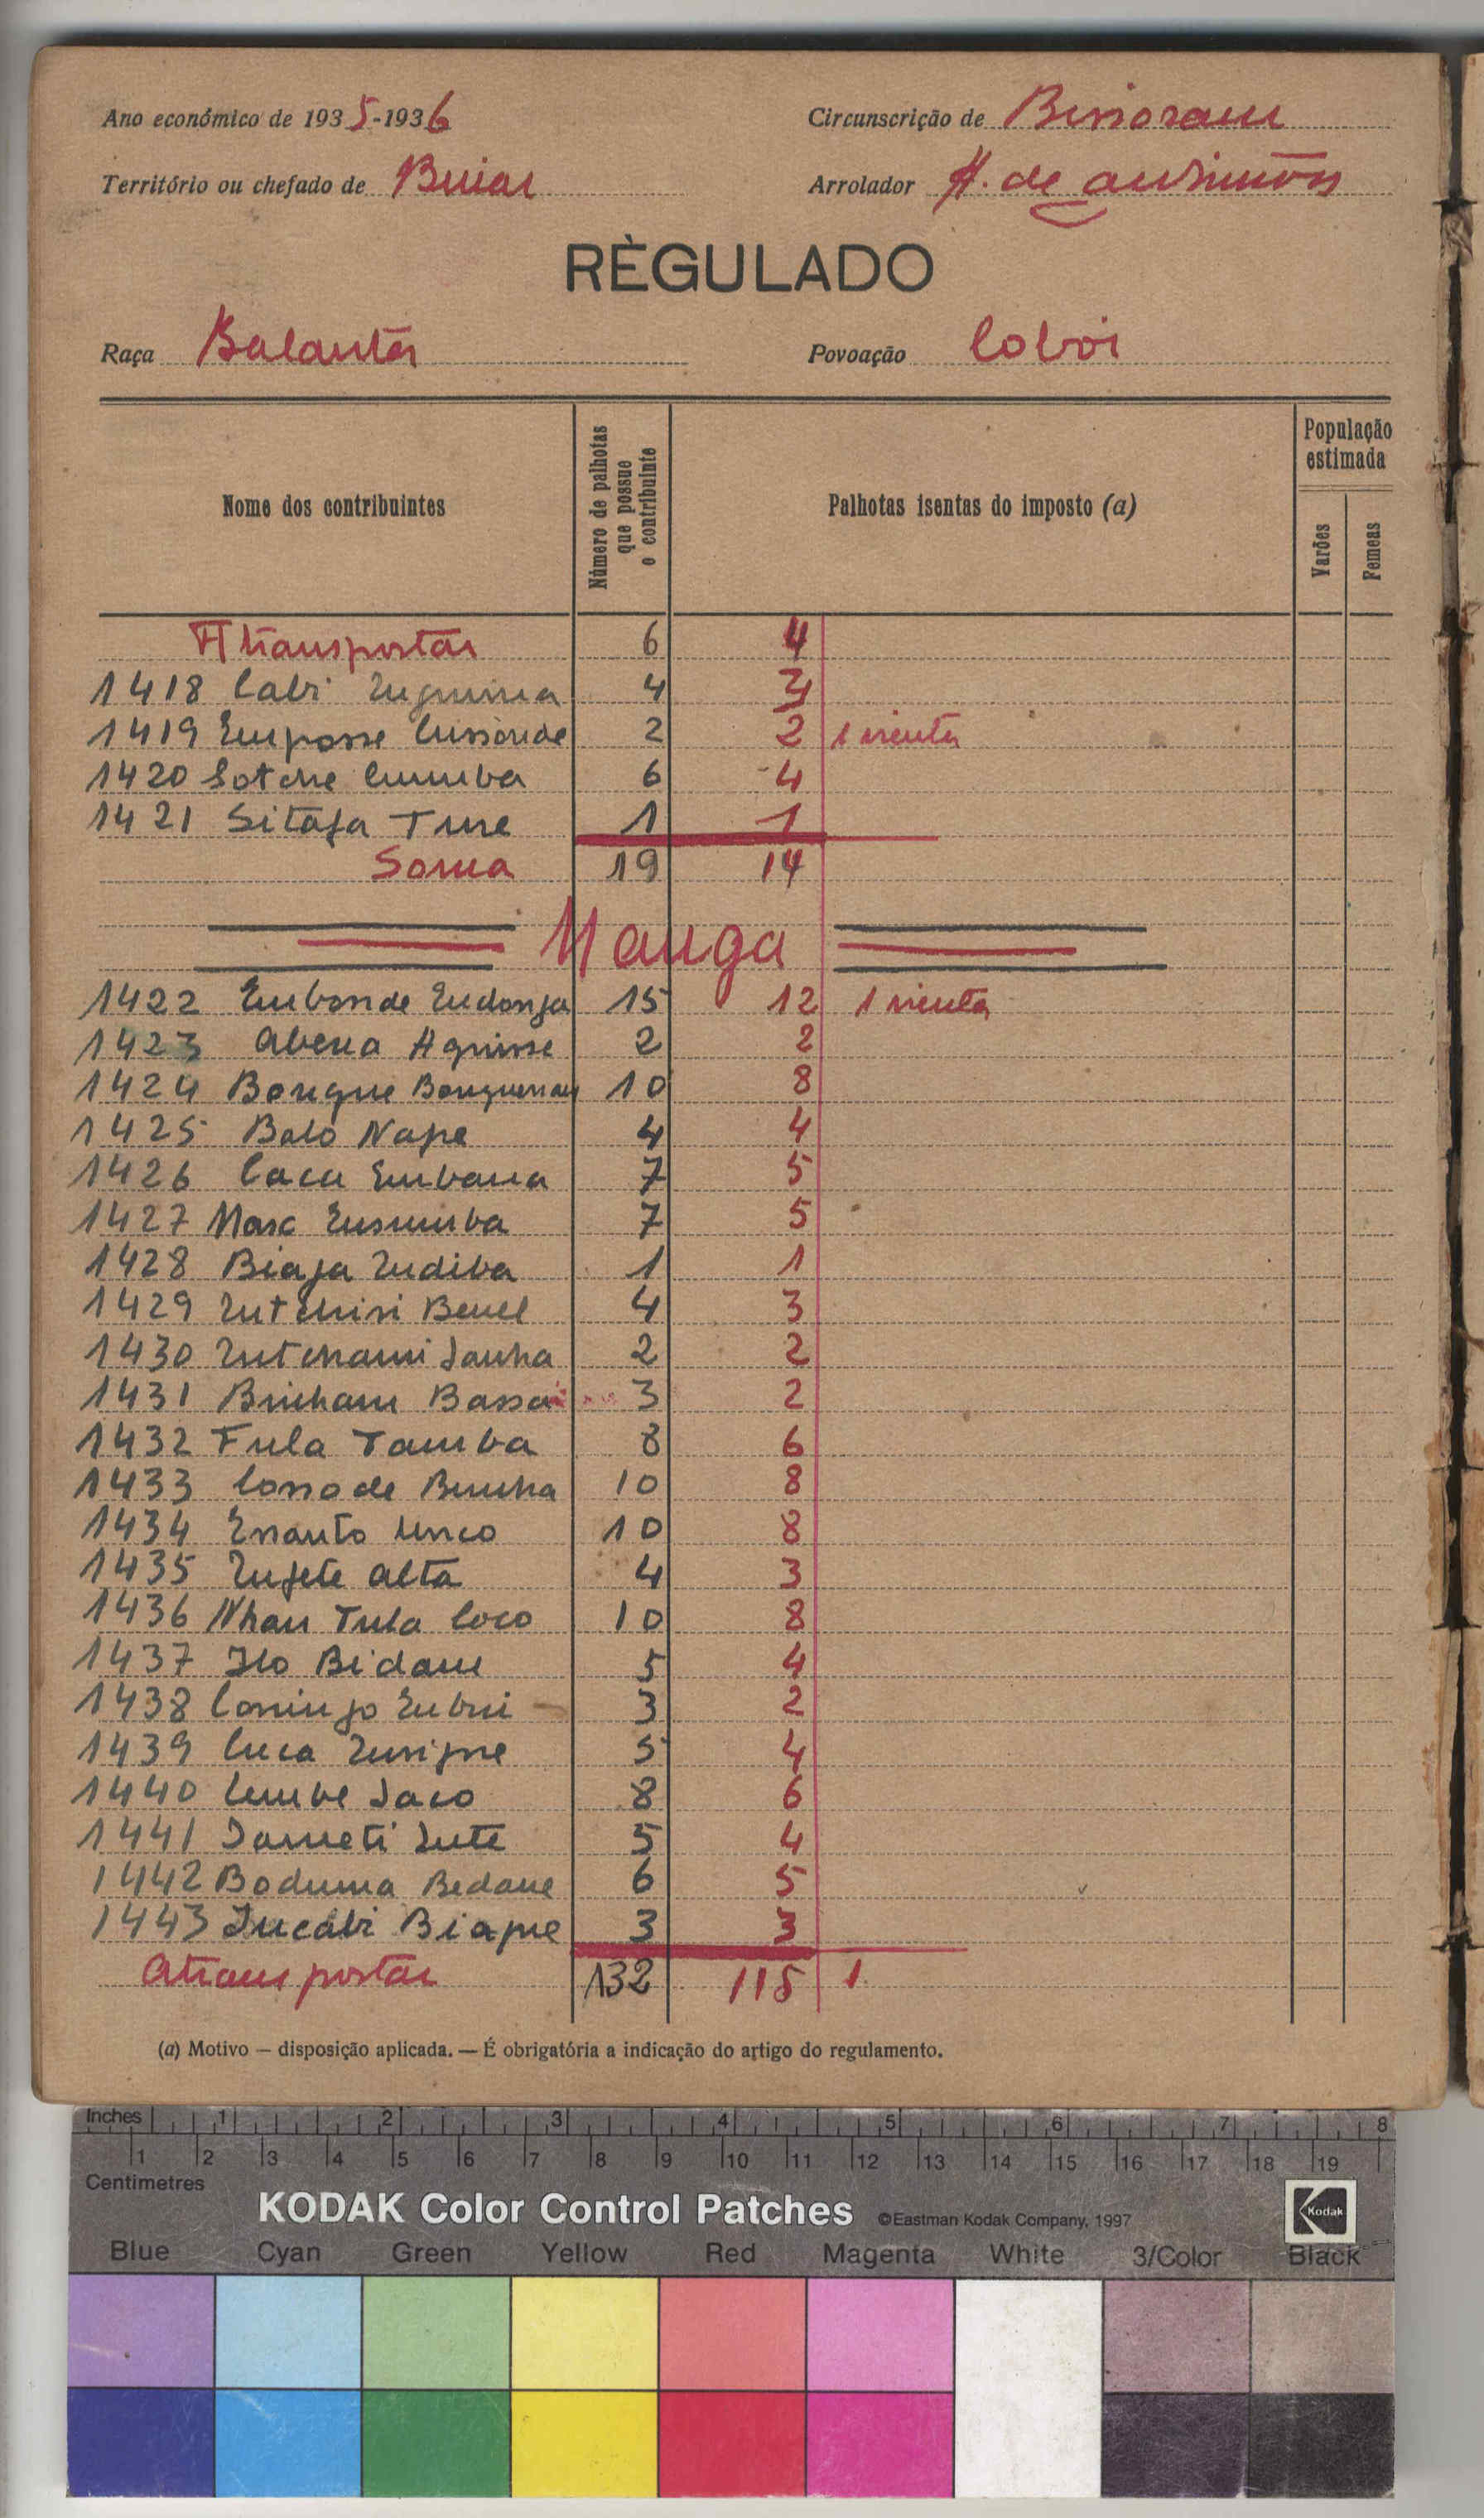 Ano económico de 1935-1936
Circunscrição de Bissoram
Território ou chefado de Buiar
Arrolador A. de
RÈGULADO
Raça Balantas
Povoação Coboi
Nome dos contribuintes
Número de palhotas que possue o contribuinte
Palhotas isentas do imposto (a)
População estimada
Varões
Femeas
A transportar 6 4
1418 Cabi 4 3
1419 Emposse 2 2 1 isenta
1420 Sotche Cumba 6 4
1421 Sitafa Ture 1 1
Soma 19 14
Manga
1422 Embonde Endonga 15 12 1 isenta
1423 Abena Aguisse 2 2
1424 Bongue 10 8
1425 Balo Nape 4 4
1426 Caca Embana 7 5
1427 Masc Ensumba 7 5
1428 Biafa Endiba 1 1
1429 Beuel 4 3
1430 Sanha 2 2
1431 Bassa 3 2
1432 Fula Tamba 8 6
1433 Cossode Bunha 10 8
1434 10 8
1435 Alta 4 3
1436 Nhan Tula Coco 10 8
1437 Ilo Bidam 5 4
1438 3 2
1439 Cuca 5 4
1440 Cumbe Jaco 8 6
1441 Jameti 5 4
1442 Boduma Bedane 6 5
1443 Biague 3 3
A transportar 132 115 1
(a) Motivo — disposição aplicada. — É obrigatória a indicação do artigo do regulamento.
Inches 1 2 3 4 5 6 7 8
1 2 3 4 5 6 7 8 9 10 11 12 13 14 15 16 17 18 19
Centimetres
KODAK Color Control Patches ©Eastman Kodak Company, 1997 Kodak
Blue Cyan Green Yellow Red Magenta White 3/Color Black